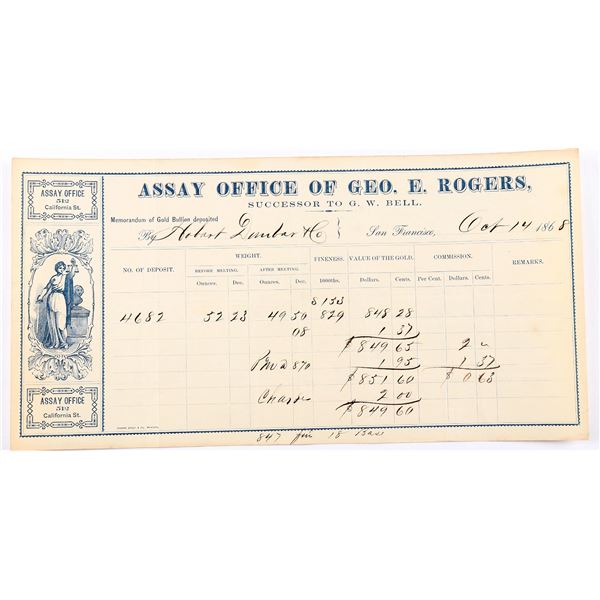 ASSAY OFFICE
512
California St.
ASSAY OFFICE OF GEO. E. ROGERS,
SUCCESSOR TO G. W. BELL.
Memorandum of Gold Bullion deposited
By Hobart Dunbar & Co San Francisco, Oct 14 1868
NO. OF DEPOSIT. WEIGHT. FINENESS. VALUE OF THE GOLD. COMMISSION. REMARKS.
BEFORE MELTING. AFTER MELTING.
Ounces. Dec. Ounces. Dec. 1000ths. Dollars. Cents. Per Cent. Dollars. Cents.
$ 153
4682 52 23 49 50 829 848 28
.08 1 37
$849 65 2
870 1 95 1 37
$851 60 $0 63
Charges 2 00
$849 60
ASSAY OFFICE
512
California St.
847 fine 18 Bars